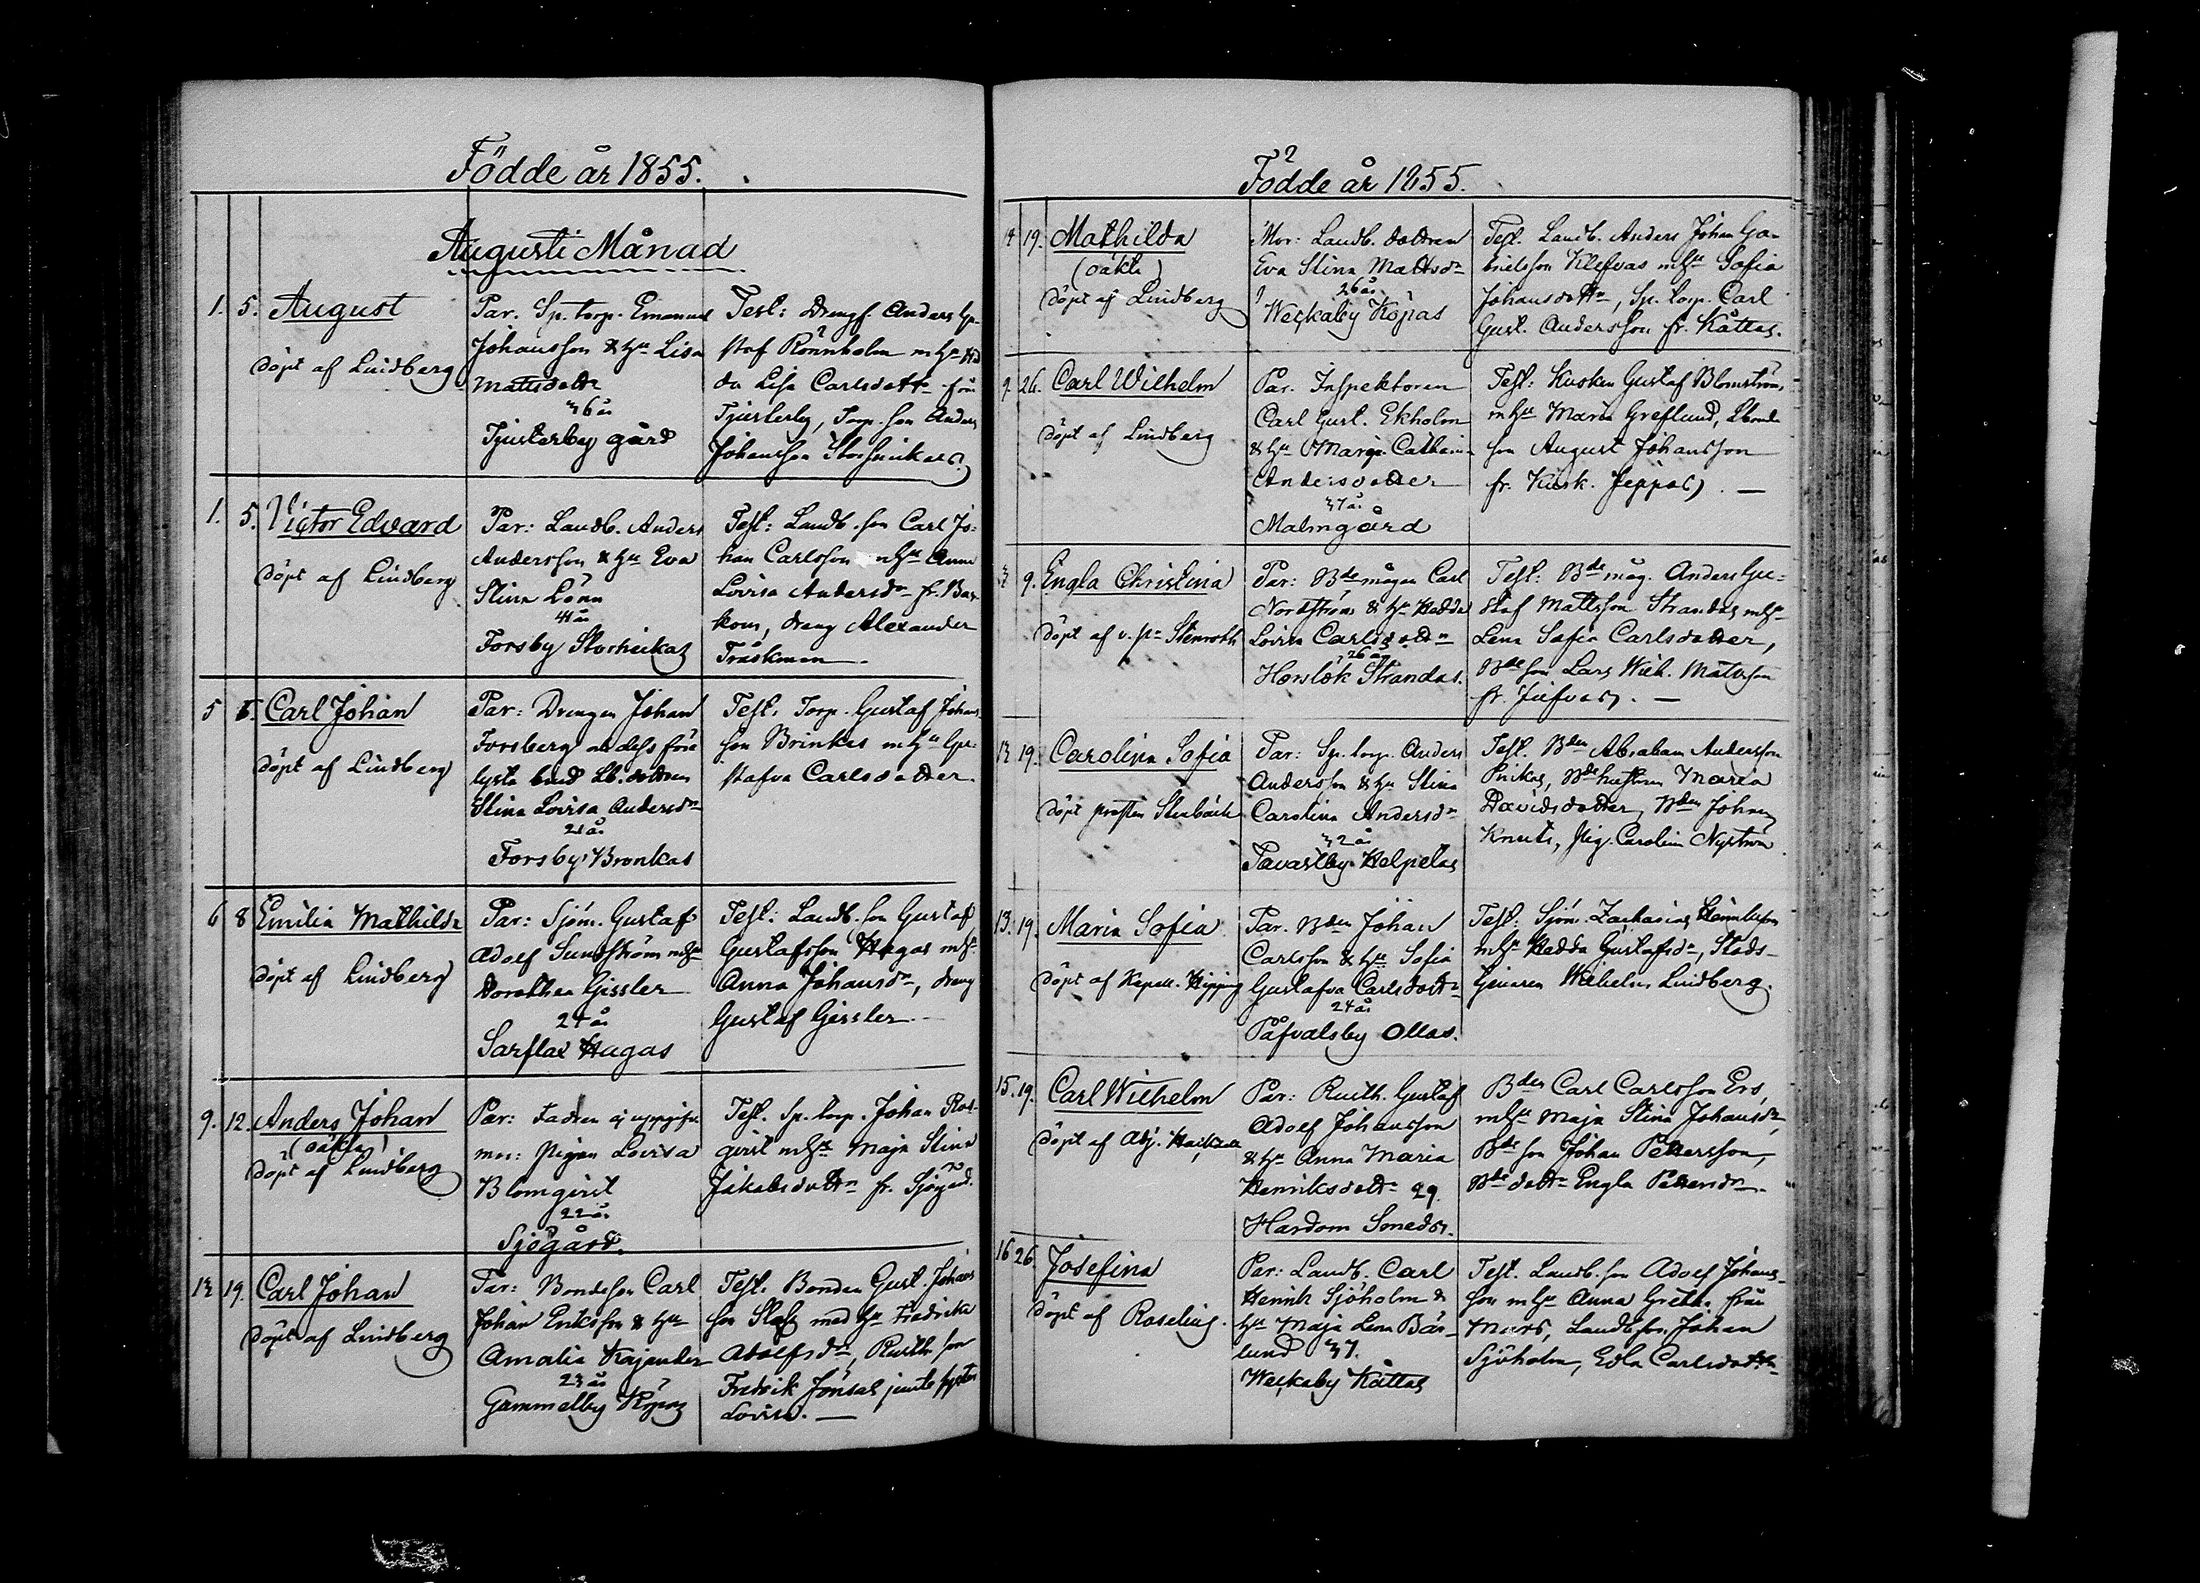 Födde år 1855.
Augusti Månad
1. 5. August
döpt af Lindberg
Par. Sp. torp. Emanuel
Johansson & hu Lisa
Mattsdotr
36 år
Tjusterby gård
Test: Drengs. Anders Gu-
staf Rönnholm m hu Hed
da Lisa Carlsdottr från
Tjusterby, Torp. son Anders
Johansson
1. 5. Victor Edvard
döpt af Lindberg
Par: Landb. Anders
Andersson & hu Eva
Stina Lönn
41 år
Forsby Storheikas
Test: Landb. son Carl Jo-
han Carlsson m hu Anna
Lovisa Andersdr fr.
drang Alexander
Träskman
5 Carl Johan
döpt af Lindberg
Par: Drengen Johan
Forsberg
lysta brud Lb. dottren
Stina Lovisa Andersdr
21 år
Forsby Bronkas
Test: Torp. Gustaf Johans-
son Brinkas m hu Gu-
stafva Carlsdotter
6 8 Emilia Mathilda
döpt af Lindberg
Par: Sjöm. Gustaf
Adolf Sundström m hu
Dorothea Gissler
24 år
Sarflax Hagas
Test: Landb. son Gustaf
Gustafsson Hagas m hu
Anna Johansdr, dreng
Gustaf Gissler
9. 12. Anders Johan
(oäkta)
döpt af Lindberg
Par: Fadren ej uppgifn
mor: Pigan Lovisa
Blomqvist
22 år
Sjögård.
Test. Sp. torp. Johan Ros-
qvist m hu Maja Stina
Jakobsdottr fr. Sjögård.
12 19. Carl Johan
döpt af Lindberg
Par: Bondeson Carl
Johan Eriksson & hu
Amalia Kajander
23 år
Gammelby Köpas
Test. Bonden Gust. Johans
son med hu Fredrika
Adolfsdr, Rusth. son
Fredrik Jonsas jemte syster
Lovisa. —
Födde år 1855.
19. Mathilda
(oäkta)
döpt af Lindberg
Mor: Landb. dottren
Eva Stina Mattsdr
26 år.
Weckaby Köpas
Test. Landb. Anders Johan Ga-
brielsson Klefvas m hu Sofia
Johansdottr, Sp. torp. Carl
Gust. Andersson fr. Kåttas.
9 26. Carl Wilhelm
döpt af Lindberg
Par. Inspektoren
Carl Gust. Ekholm
& hu Maria Cathrin
Andersdotter
37 år
Malmgård
Test: Kusken Gustaf Blomström,
m hu Maria Greflund, Lbonde
son August Johansson
fr. Kusk. Jeppas. —
9. Engla Christina
döpt af v. pr Stenroth
Par: Bde mågen Carl
Nordström & hu Hedda
Lovisa Carlsdottr
26 år
Horslök Strandas.
Test: Bde måg. Anders Gu-
staf Mattsson Strandas m hu
Lena Sofia Carlsdotter,
Bde son Lars Wilh. Mattsson
fr. Julfvas. —
12 19. Carolina Sofia
döpt prosten Stenbäck
Par: Sp. torp. Anders
Andersson & hu Stina
Carolina Andersdr
32 år
Tavastby Helpelas
Test. Bden Abraham Andersson
Bde hustrun Maria
Davidsdotter, Bden Johan
Knuts, Pig. Carolina Nyström
13. 19. Maria Sofia
döpt af Kapell. Hipping
Par. Bden Johan
Carlsson & hu Sofia
Gustafva Carlsdottr
24 år
Påfvalsby Ollas.
Test: Sjöm. Zacharias
m hu Hedda Gustafsdr, Stads-
tjenaren Wilhelm Lindberg.
15. 19. Carl Wilhelm
döpt af Adj.
Par: Rusth. Gustaf
Adolf Johansson
& hu Anna Maria
Henriksdottr 29.
Hardom Smeds.
Bden Carl Carlsson Ers,
m hu Maja Stina Johansdr,
Bde son Johan Pettersson,
Bde dottr Engla Pettersdr
16 26. Josefina
döpt af Roselius.
Par: Landb. Carl
Henrik Sjöholm &
hu Maja Lena Bär-
lund 37.
Weckaby Kåttas
Test. Landb. son Adolf Johans-
son m hu Anna Greta från
Mars, Landb. son Johan
Sjöholm, Edla Carlsdottr